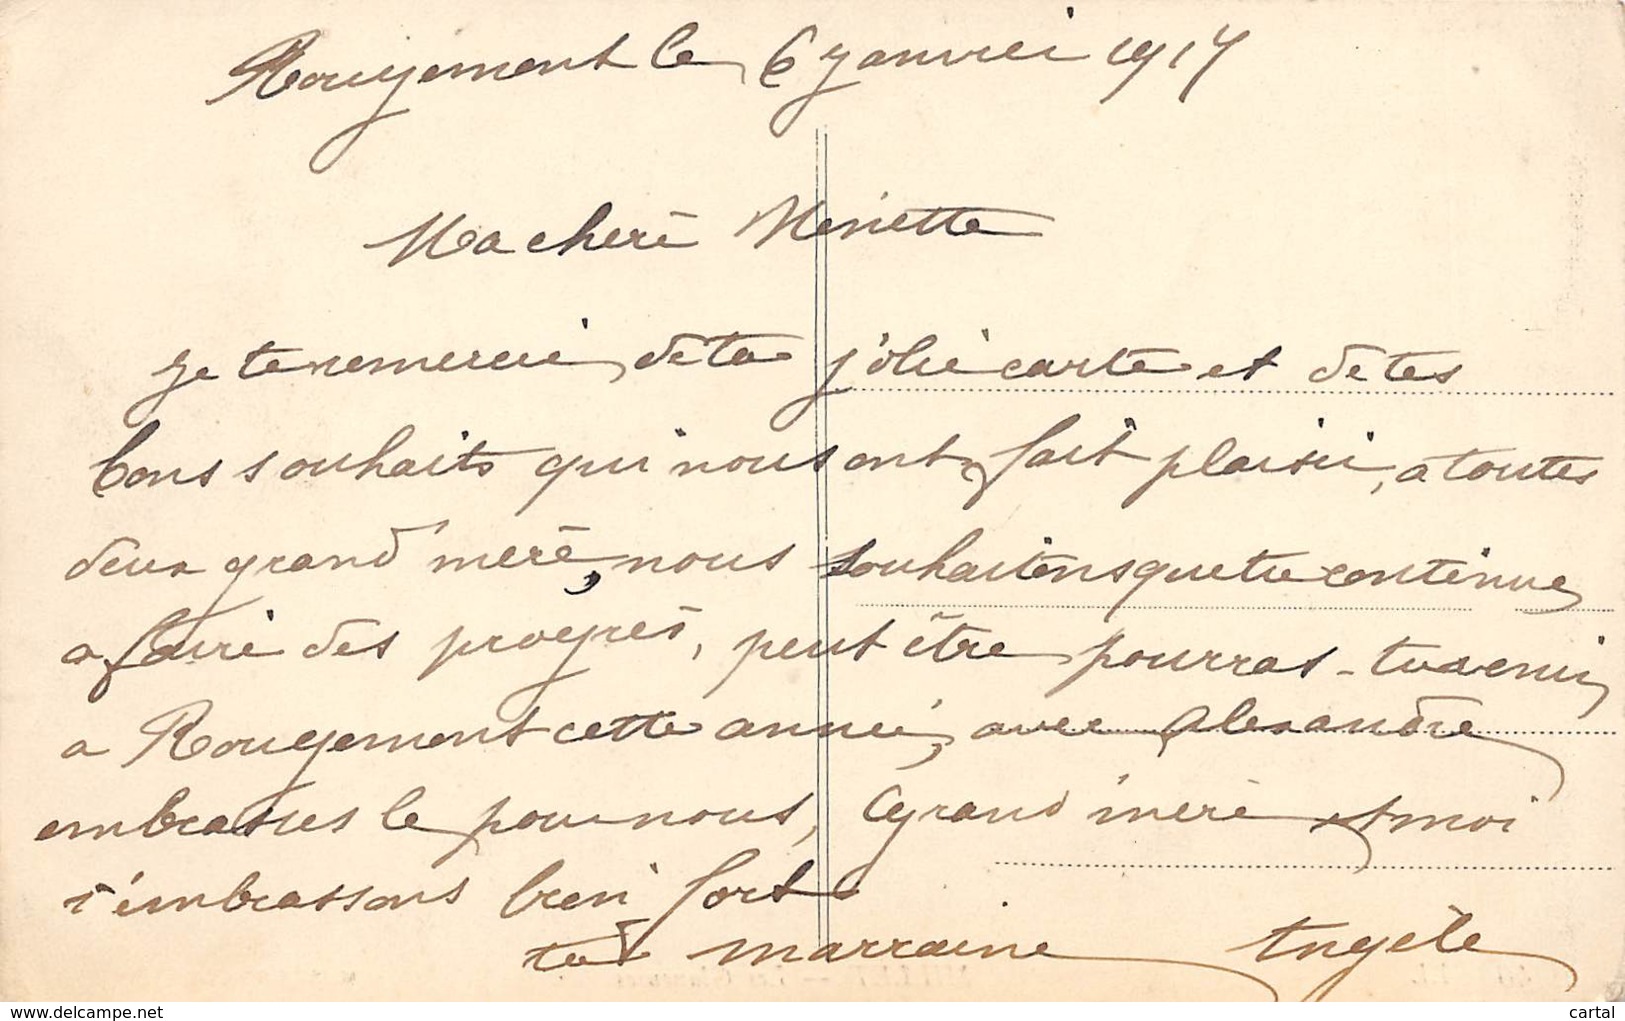 Rougemont le 6 janvier 1917
Ma chere Ninette
Je te remercie de ta jolie carte et de tes
bons souhaits qui nous ont fait plaisir, a toutes
deux grand'mere, nous souhaitons que tu continue
a faire des progrès, peut être pourras-tu venir
a Rougemont cette année, avec Alexandre
embrasses le pour nous, Grand'mère et moi
t'embrassons bien fort
ta marraine Angèle
www.delcampe.net
cartal